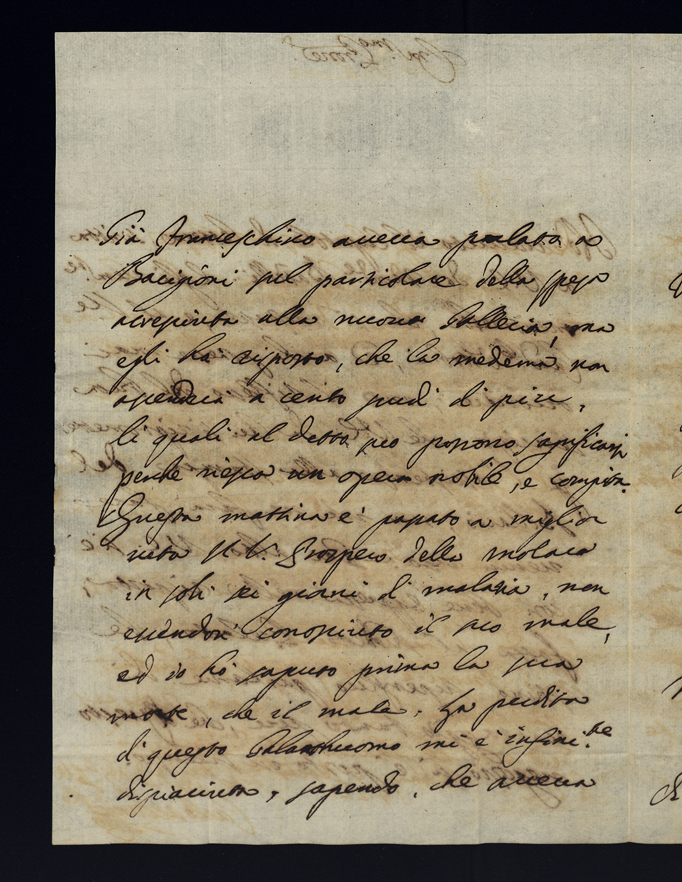 Già Franceschino aveva parlato a
Baciğoni pel particolare della spesa
accresciuta alla nuova Galleria, ma
egli ha risposto, che la medema non
ascendeva a cento scudi di più,
li quali al detto suo possono sagrificarsi
perche riesca un opera nobile, e compita.
Questa mattina è passato a miglior
vita il V. Prospero della Molara
in soli sei giorni di malatia, non
essendosi conosciuto il suo male,
ed io ho saputo prima la sua
morte, che il male. La perdita
di questo Galantuomo mi è infini.te
dispiaciuta, sapendo, che aveva